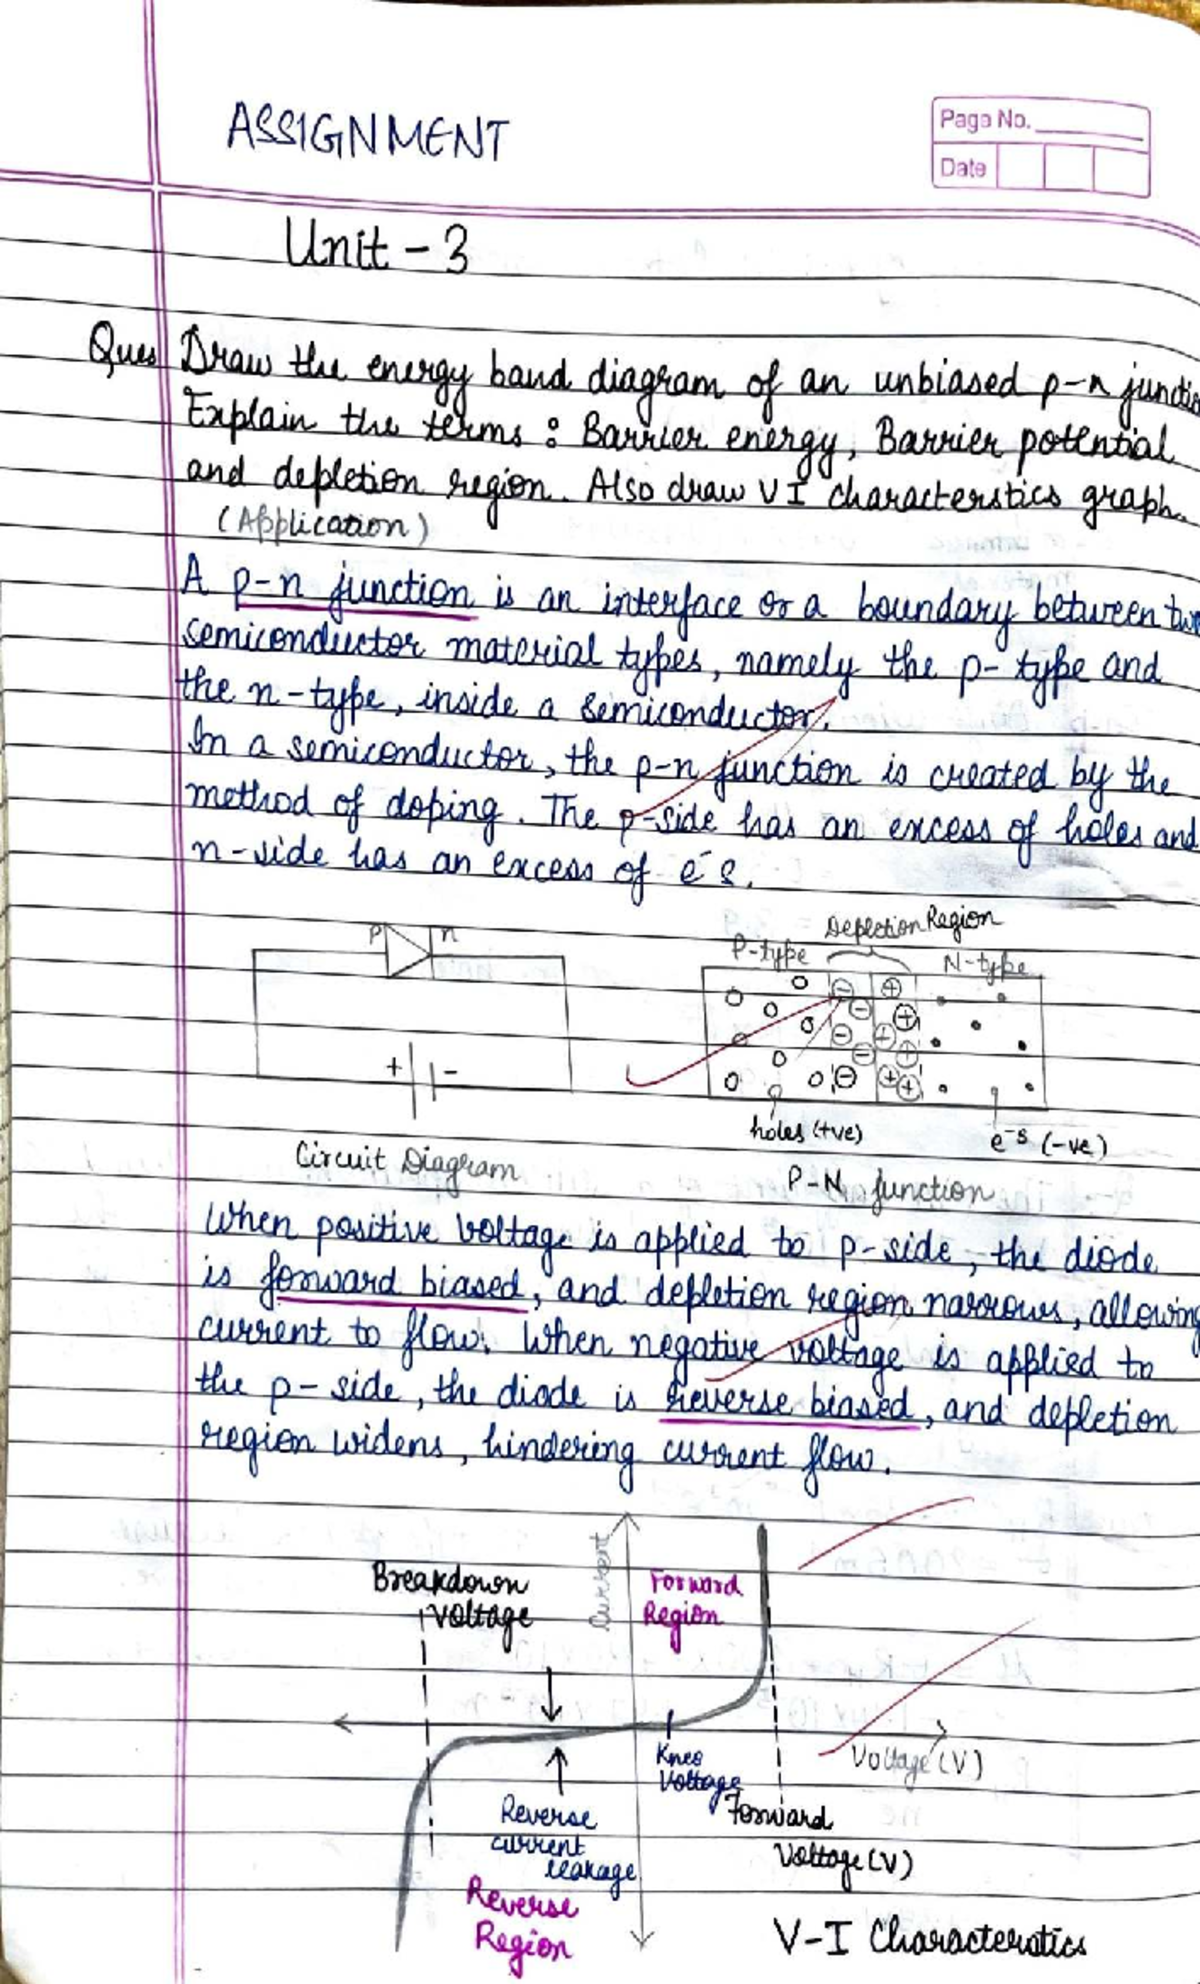 ASSIGNMENT
Page No.
Date
Unit - 3
Ques Draw the energy band diagram of an unbiased p-n junctio
Explain the terms : Barrier energy, Barrier potential
and depletion region. Also draw VI characterstics graph.
(Application)
A p-n junction is an interface or a boundary between two
semiconductor material types, namely the p-type and
the n-type, inside a semiconductor.
In a semiconductor, the p-n junction is created by the
method of doping. The p-side has an excess of holes and
n-side has an excess of e⁻s.
P n
+ -
Circuit Diagram
Depletion Region
P-type N-type
holes (+ve)
e⁻s (-ve)
P-N junction
When positive voltage is applied to p-side, the diode
is forward biased, and depletion region narrows, allowing
current to flow. When negative voltage is applied to
the p-side, the diode is reverse biased, and depletion
region widens, hindering current flow.
Current
Breakdown
Voltage
Forward
Region
Knee
Voltage
Voltage (V)
Forward
Voltage (V)
Reverse
current
leakage
Reverse
Region
V-I Characterstics